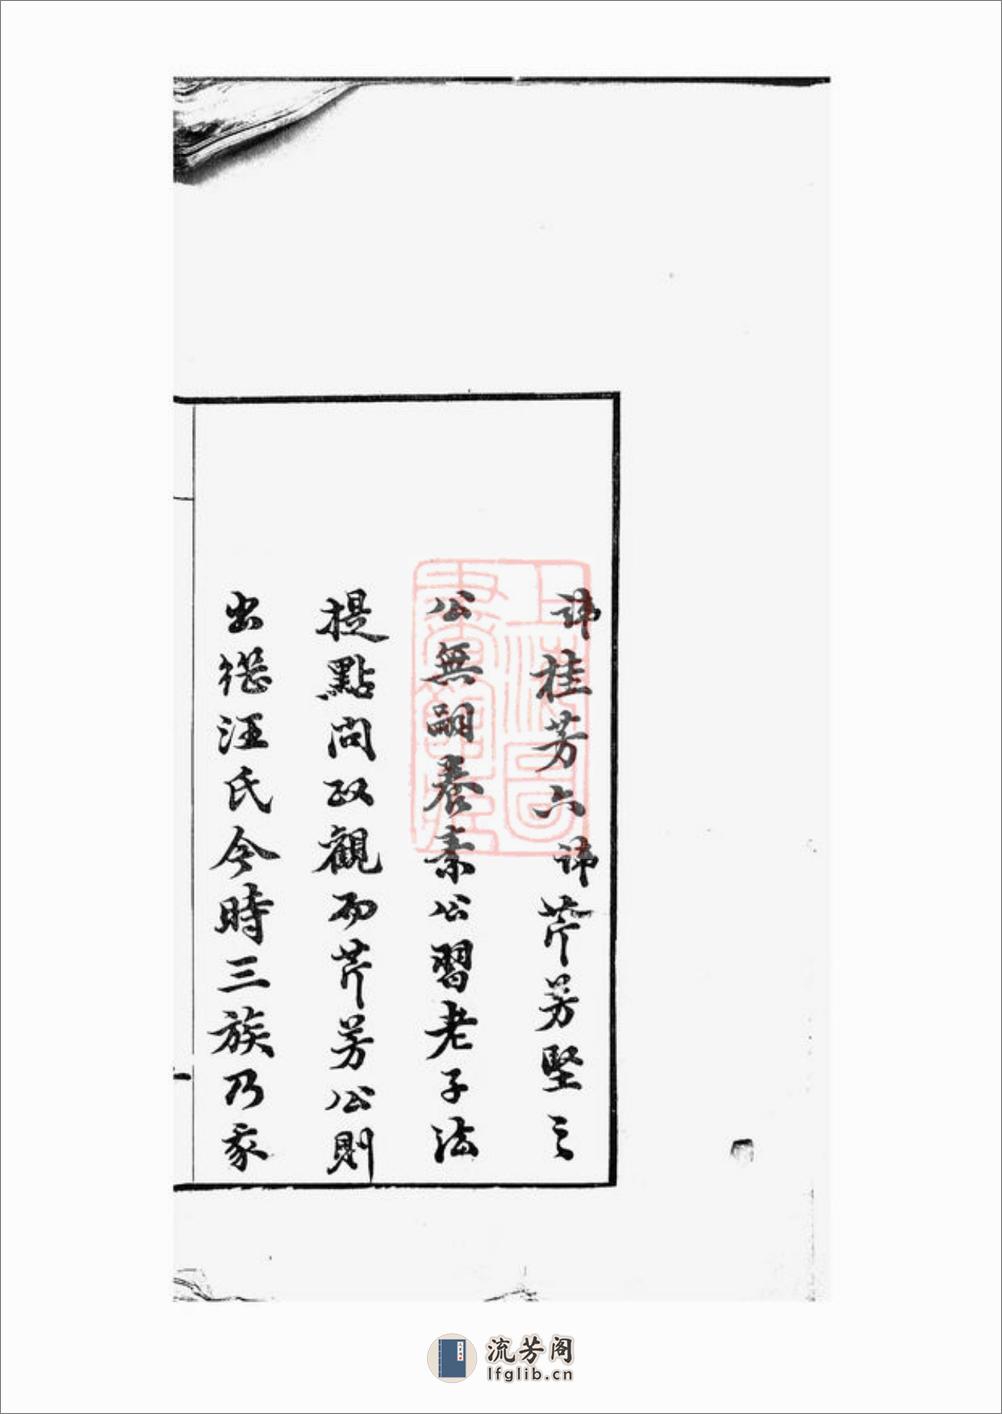 諱桂芳六諱芹芳堅之
公無嗣養素公習老子法
提點問政觀而芹芳公則
出繼汪氏今時三族乃家
上海圖書館藏
流芳阁
lfglib.cn